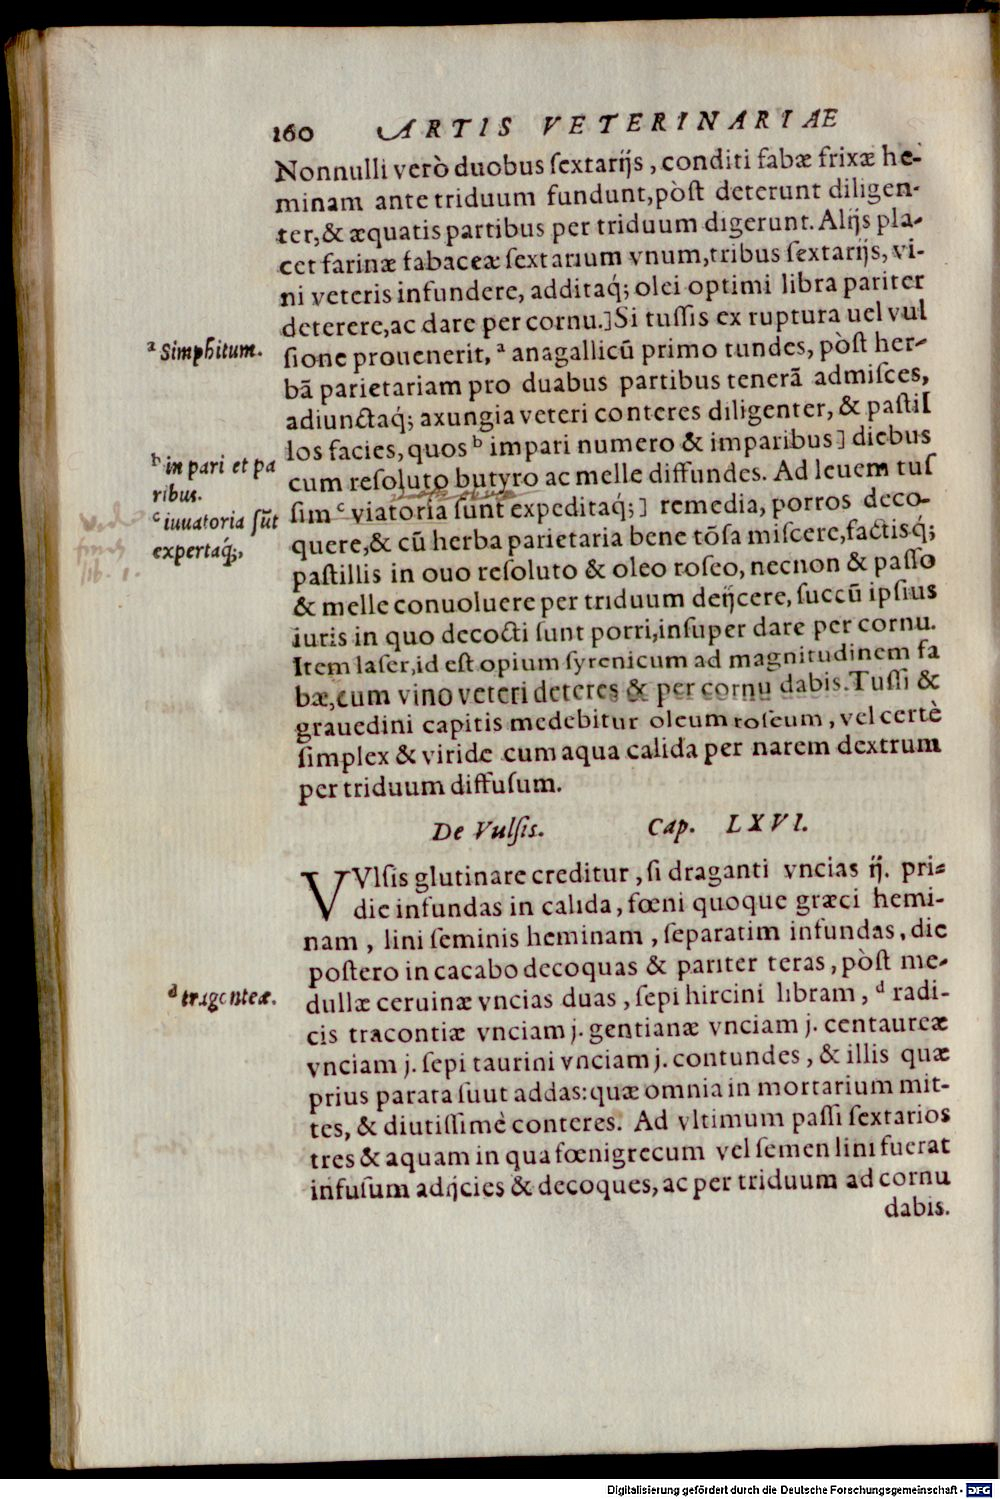 160 ARTIS VETERINARIAE
Nonnulli verò duobus sextarijs, conditi fabæ frixæ he-
minam ante triduum fundunt, pòst deterunt diligen-
ter, & æquatis partibus per triduum digerunt. Alijs pla-
cet farinæ fabaceæ sextarium vnum, tribus sextarijs, vi-
ni veteris infundere, additaq́; olei optimi libra pariter
deterere, ac dare per cornu.] Si tussis ex ruptura uel vul
sione prouenerit, ª anagallicū primo tundes, pòst her-
bā parietariam pro duabus partibus tenerā admisces,
adiunctaq́; axungia veteri conteres diligenter, & pastil
los facies, quos ᵇ impari numero & imparibus] diebus
cum resoluto butyro ac melle diffundes. Ad leuem tus
sim ᶜ viatoria sunt expeditaq́;] remedia, porros deco-
quere, & cū herba parietaria bene tōsa miscere, factisq́;
pastillis in ouo resoluto & oleo roseo, necnon & passo
& melle conuoluere per triduum deijcere, succū ipsius
iuris in quo decocti sunt porri, insuper dare per cornu.
Item laser, id est opium syrenicum ad magnitudinem fa
bæ, cum vino veteri deteres & per cornu dabis. Tussi &
grauedini capitis medebitur oleum roseum, vel certè
simplex & viride cum aqua calida per narem dextrum
per triduum diffusum.
ª Simphitum.
ᵇ in pari et pa
ribus.
ᶜ iuuatoria sūt
expertaq́;,
lib. 1.
De Vulsis. Cap. LXVI.
VVlsis glutinare creditur, si draganti vncias ij. pri-
die infundas in calida, fœni quoque græci hemi-
nam, lini seminis heminam, separatim infundas, die
postero in cacabo decoquas & pariter teras, pòst me-
dullæ ceruinæ vncias duas, sepi hircini libram, ᵈ radi-
cis tracontiæ vnciam j. gentianæ vnciam j. centaureæ
vnciam j. sepi taurini vnciam j. contundes, & illis quæ
prius parata suut addas: quæ omnia in mortarium mit-
tes, & diutissimè conteres. Ad vltimum passi sextarios
tres & aquam in qua fœnigrecum vel semen lini fuerat
infusum adijcies & decoques, ac per triduum ad cornu
dabis.
ᵈ tragenteæ.
Digitalisierung gefördert durch die Deutsche Forschungsgemeinschaft - DFG